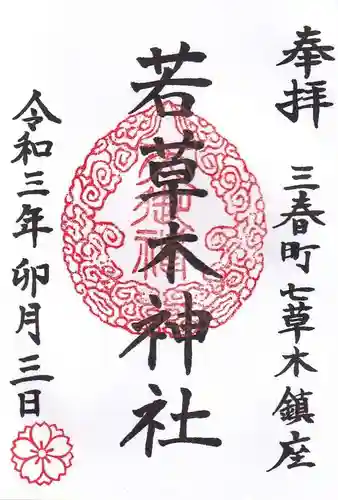 奉拝
三春町七草木鎮座
若草木神社
令和三年卯月三日